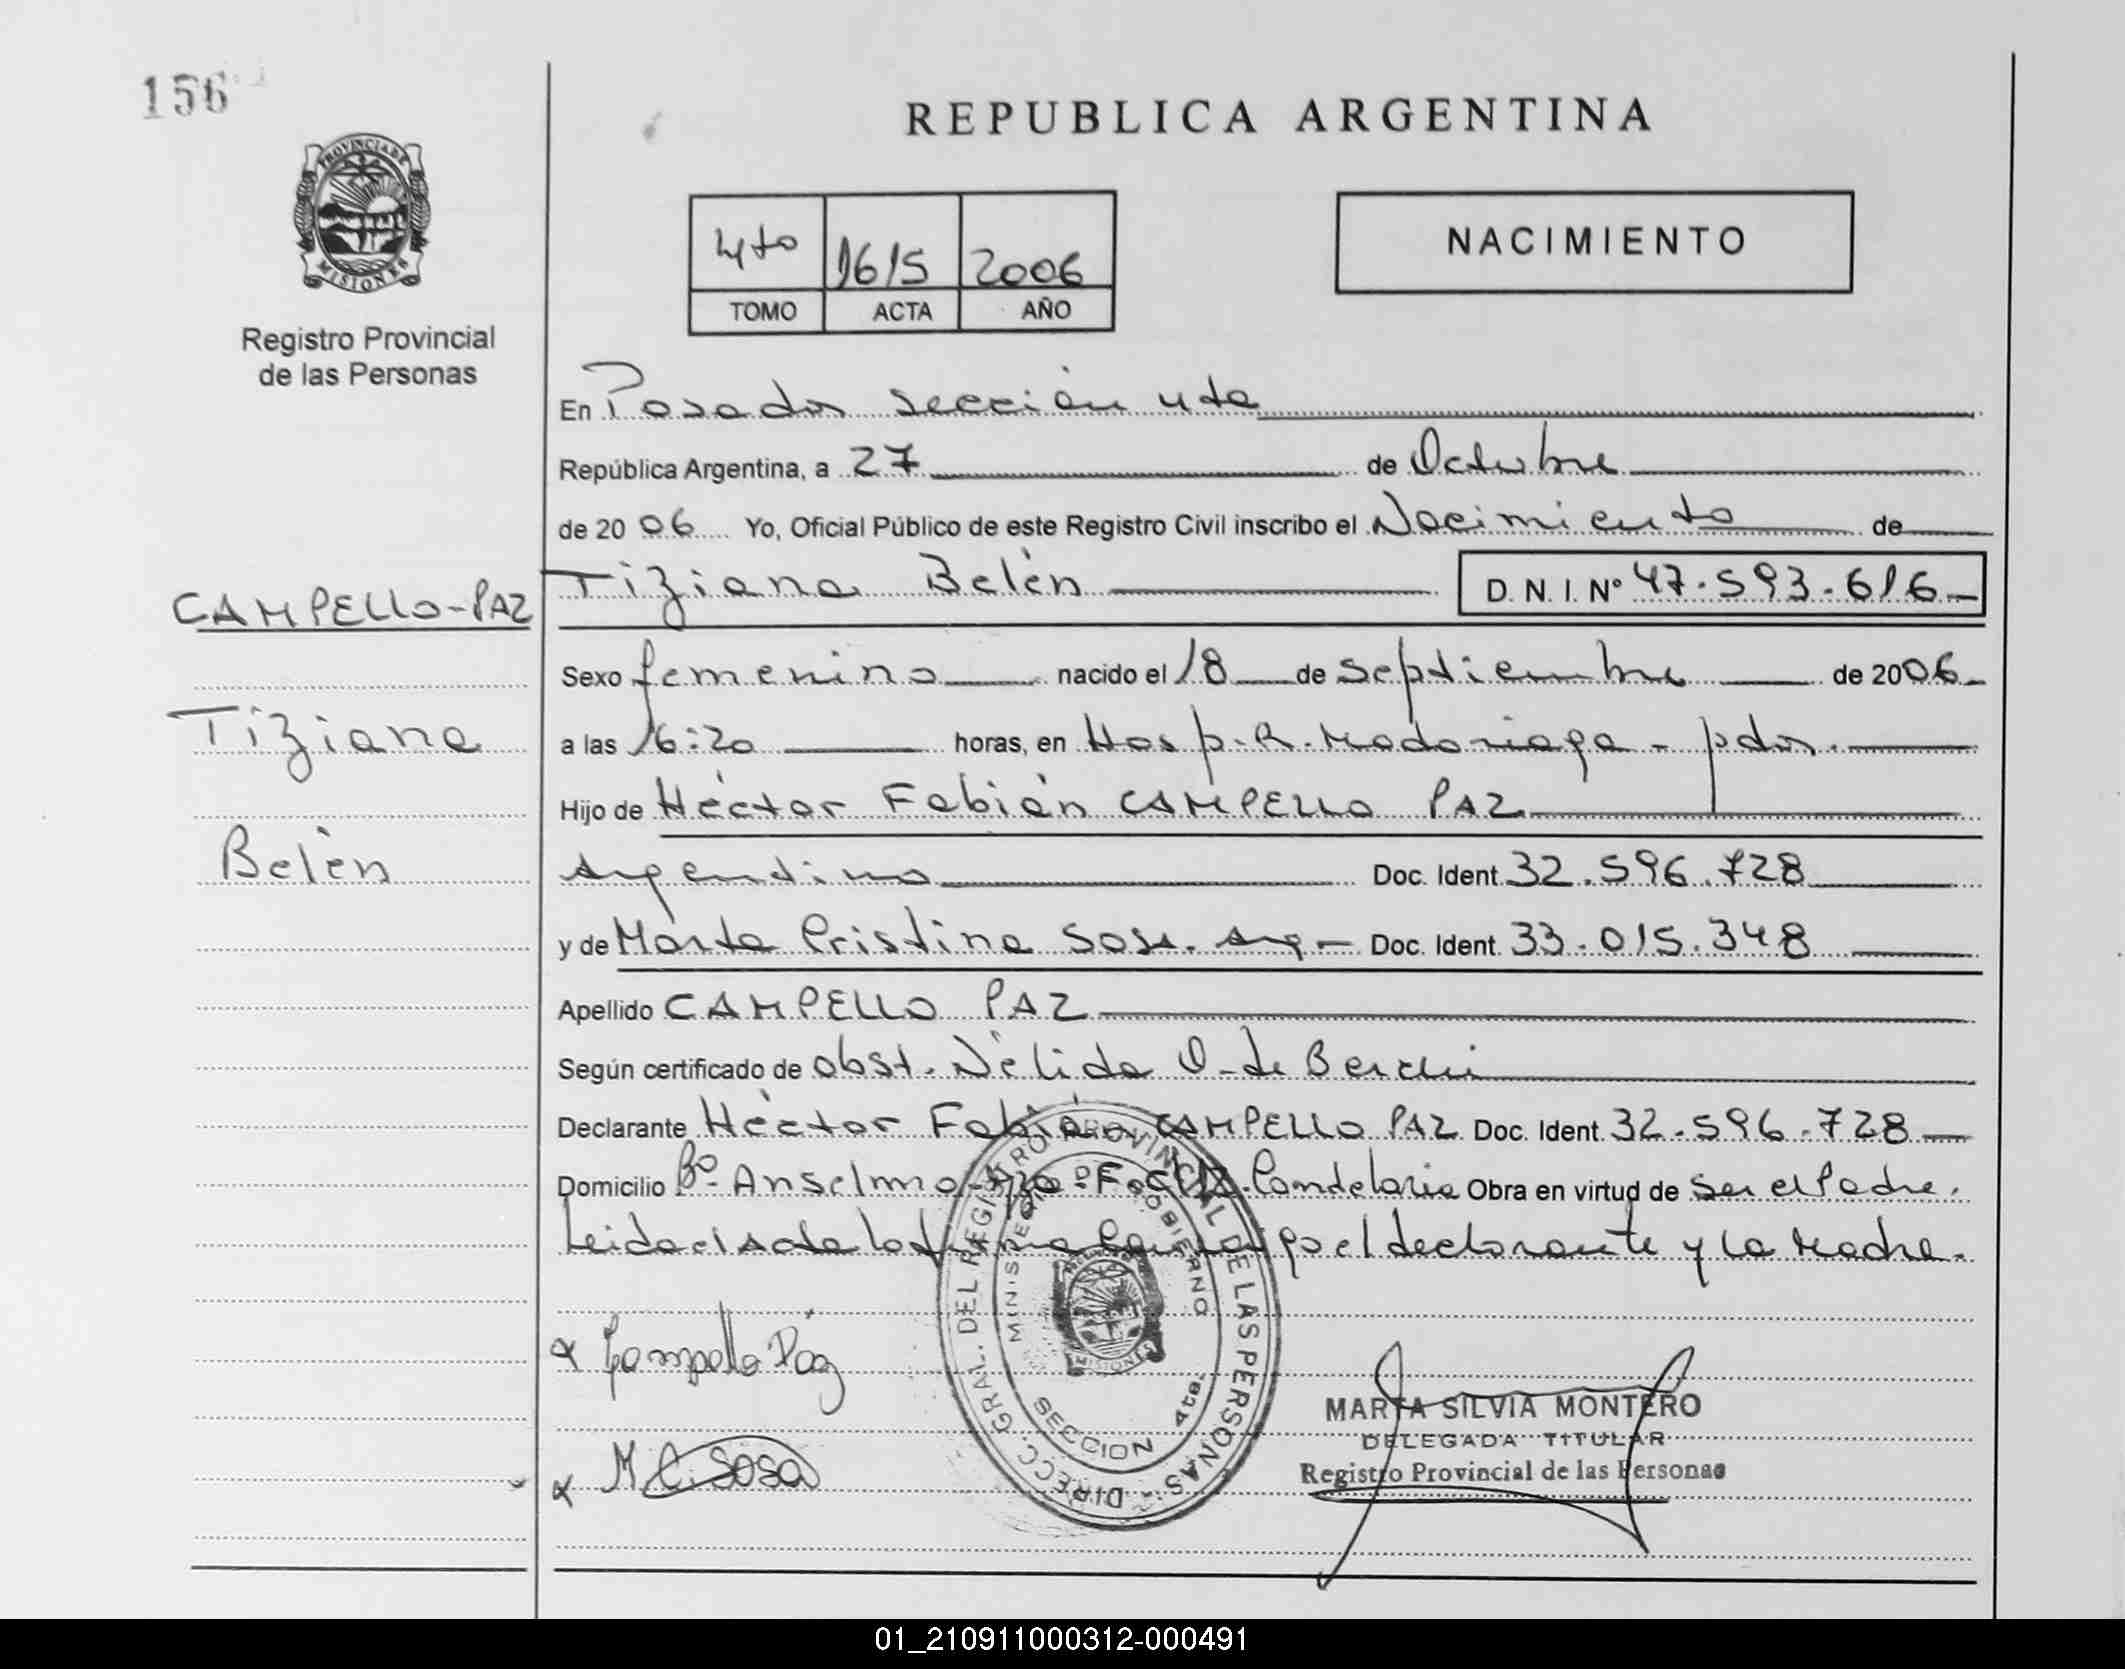 156
PROVINCIA DE
MISIONES
Registro Provincial
de las Personas
CAMPELLO-PAZ
Tiziana
Belén
REPUBLICA ARGENTINA
4to 1615 2006
TOMO ACTA AÑO
NACIMIENTO
En Posadas sección 4ta
República Argentina, a 27 de Octubre
de 2006 Yo, Oficial Público de este Registro Civil inscribo el Nacimiento de
Tiziana Belén D. N. I. Nº 47.593.616
Sexo femenino nacido el 18 de Septiembre de 2006
a las 16:20 horas, en Hosp. R. Madariaga - pdas.
Hijo de Héctor Fabián CAMPELLO PAZ
Argentino Doc. Ident. 32.596.728
y de Marta Cristina Sosa. Arg- Doc. Ident. 33.015.348
Apellido CAMPELLO PAZ
Según certificado de obst. Nélida O. de
Declarante Héctor Fabián CAMPELLO PAZ Doc. Ident. 32.596.728
Domicilio Bº Anselmo Candelaria Obra en virtud de ser el Padre.
Leida el Acta la firma el declarante y la Madre.
Campello Paz
M C. Sosa
DIRECC. GRAL. DEL REGISTRO PROVINCIAL DE LAS PERSONAS -
MINISTERIO DE GOBIERNO
MISIONES
SECCION 4ta.
MARTA SILVIA MONTERO
DELEGADA TITULAR
Registro Provincial de las Personas
01_210911000312-000491